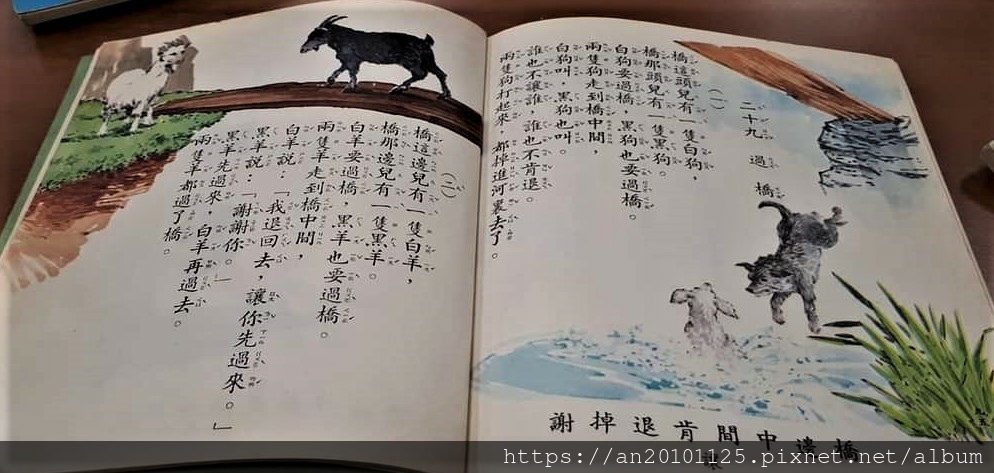 二十九 過橋
(一)
橋這頭兒有一隻白狗，
橋那頭兒有一隻黑狗。
白狗要過橋，黑狗也要過橋。
兩隻狗走到橋中間，
白狗叫，黑狗也叫。
誰也不讓誰，誰也不肯退。
兩隻狗打起來，都掉進河裏去了。
橋邊中間肯退掉謝
讓
(二)
橋這邊兒有一隻白羊，
橋那邊兒有一隻黑羊。
白羊要過橋，黑羊也要過橋。
兩隻羊走到橋中間，
白羊說：「我退回去，讓你先過來。」
黑羊說：「謝謝你。」
黑羊先過來，白羊再過去。
兩隻羊都過了橋。
https://an20101125.pixnet.net/album